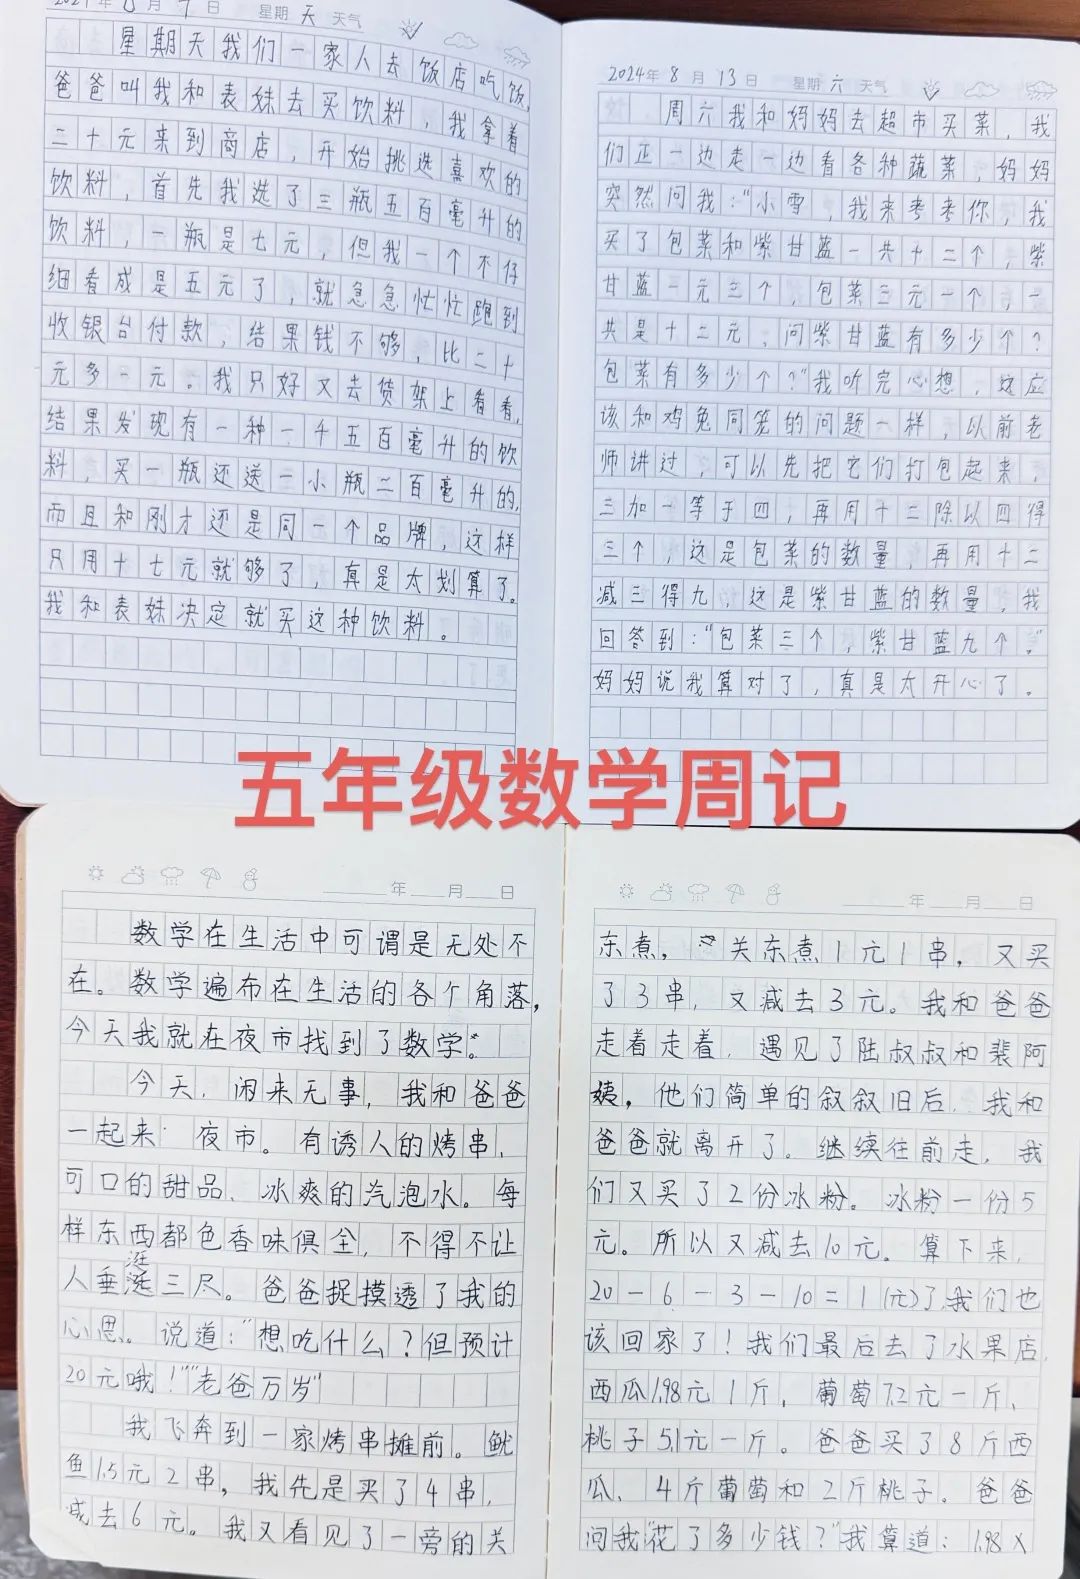 星期 天 天气
星期天我们一家人去饭店吃饭,
爸爸叫我和表妹去买饮料，我拿着
二十元来到商店，开始挑选喜欢的
饮料，首先我选了三瓶五百毫升的
饮料，一瓶是七元，但我一个不仔
细看成是五元了，就急急忙忙跑到
收银台付款，结果钱不够，比二十
元多一元。我只好又去货架上看看,
结果发现有一种一千五百毫升的饮
料，买一瓶还送一小瓶二百毫升的,
而且和刚才还是同一个品牌，这样
只用十七元就够了，真是太划算了。
我和表妹决定就买这种饮料。
2024年 8 月 13 日 星期 六 天气
周六我和妈妈去超市买菜，我
们正一边走一边看各种蔬菜，妈妈
突然问我："小雪，我来考考你，我
买了包菜和紫甘蓝一共十二个，紫
甘蓝一元三个，包菜三元一个，一
共是十二元，问紫甘蓝有多少个？
包菜有多少个？"我听完心想，这应
该和鸡兔同笼的问题一样，以前老
师讲过，可以先把它们打包起来，
三加一等于四，再用十二除以四得
三个，这是包菜的数量，再用十二
减三得九，这是紫甘蓝的数量，我
回答到："包菜三个，紫甘蓝九个。"
妈妈说我算对了，真是太开心了。
五年级数学周记
年 月 日
数学在生活中可谓是无处不
在。数学遍布在生活的各个角落，
今天我就在夜市找到了数学。
今天，闲来无事，我和爸爸
一起来 夜市。有诱人的烤串、
可口的甜品、冰爽的汽泡水。每
样东西都色香味俱全，不得不让
人垂涎三尺。爸爸捉摸透了我的
心思。说道："想吃什么？但预计
20元哦！""老爸万岁"
我飞奔到一家烤串摊前。鱿
鱼1.5元2串，我先是买了4串，
减去6元。我又看见了一旁的关
年 月 日
东煮，关东煮1元1串，又买
了3串，又减去3元。我和爸爸
走着走着，遇见了陆叔叔和裴阿
姨，他们简单的叙叙旧后，我和
爸爸就离开了。继续往前走，我
们又买了2份冰粉。冰粉一份5
元。所以又减去10元。算下来，
20-6-3-10=1(元)了,我们也
该回家了！我们最后去了水果店,
西瓜1.98元1斤，葡萄7.2元一斤、
桃子5.1元一斤。爸爸买了8斤西
瓜、4斤葡萄和2斤桃子。爸爸
问我"花了多少钱？"我算道：1.98×